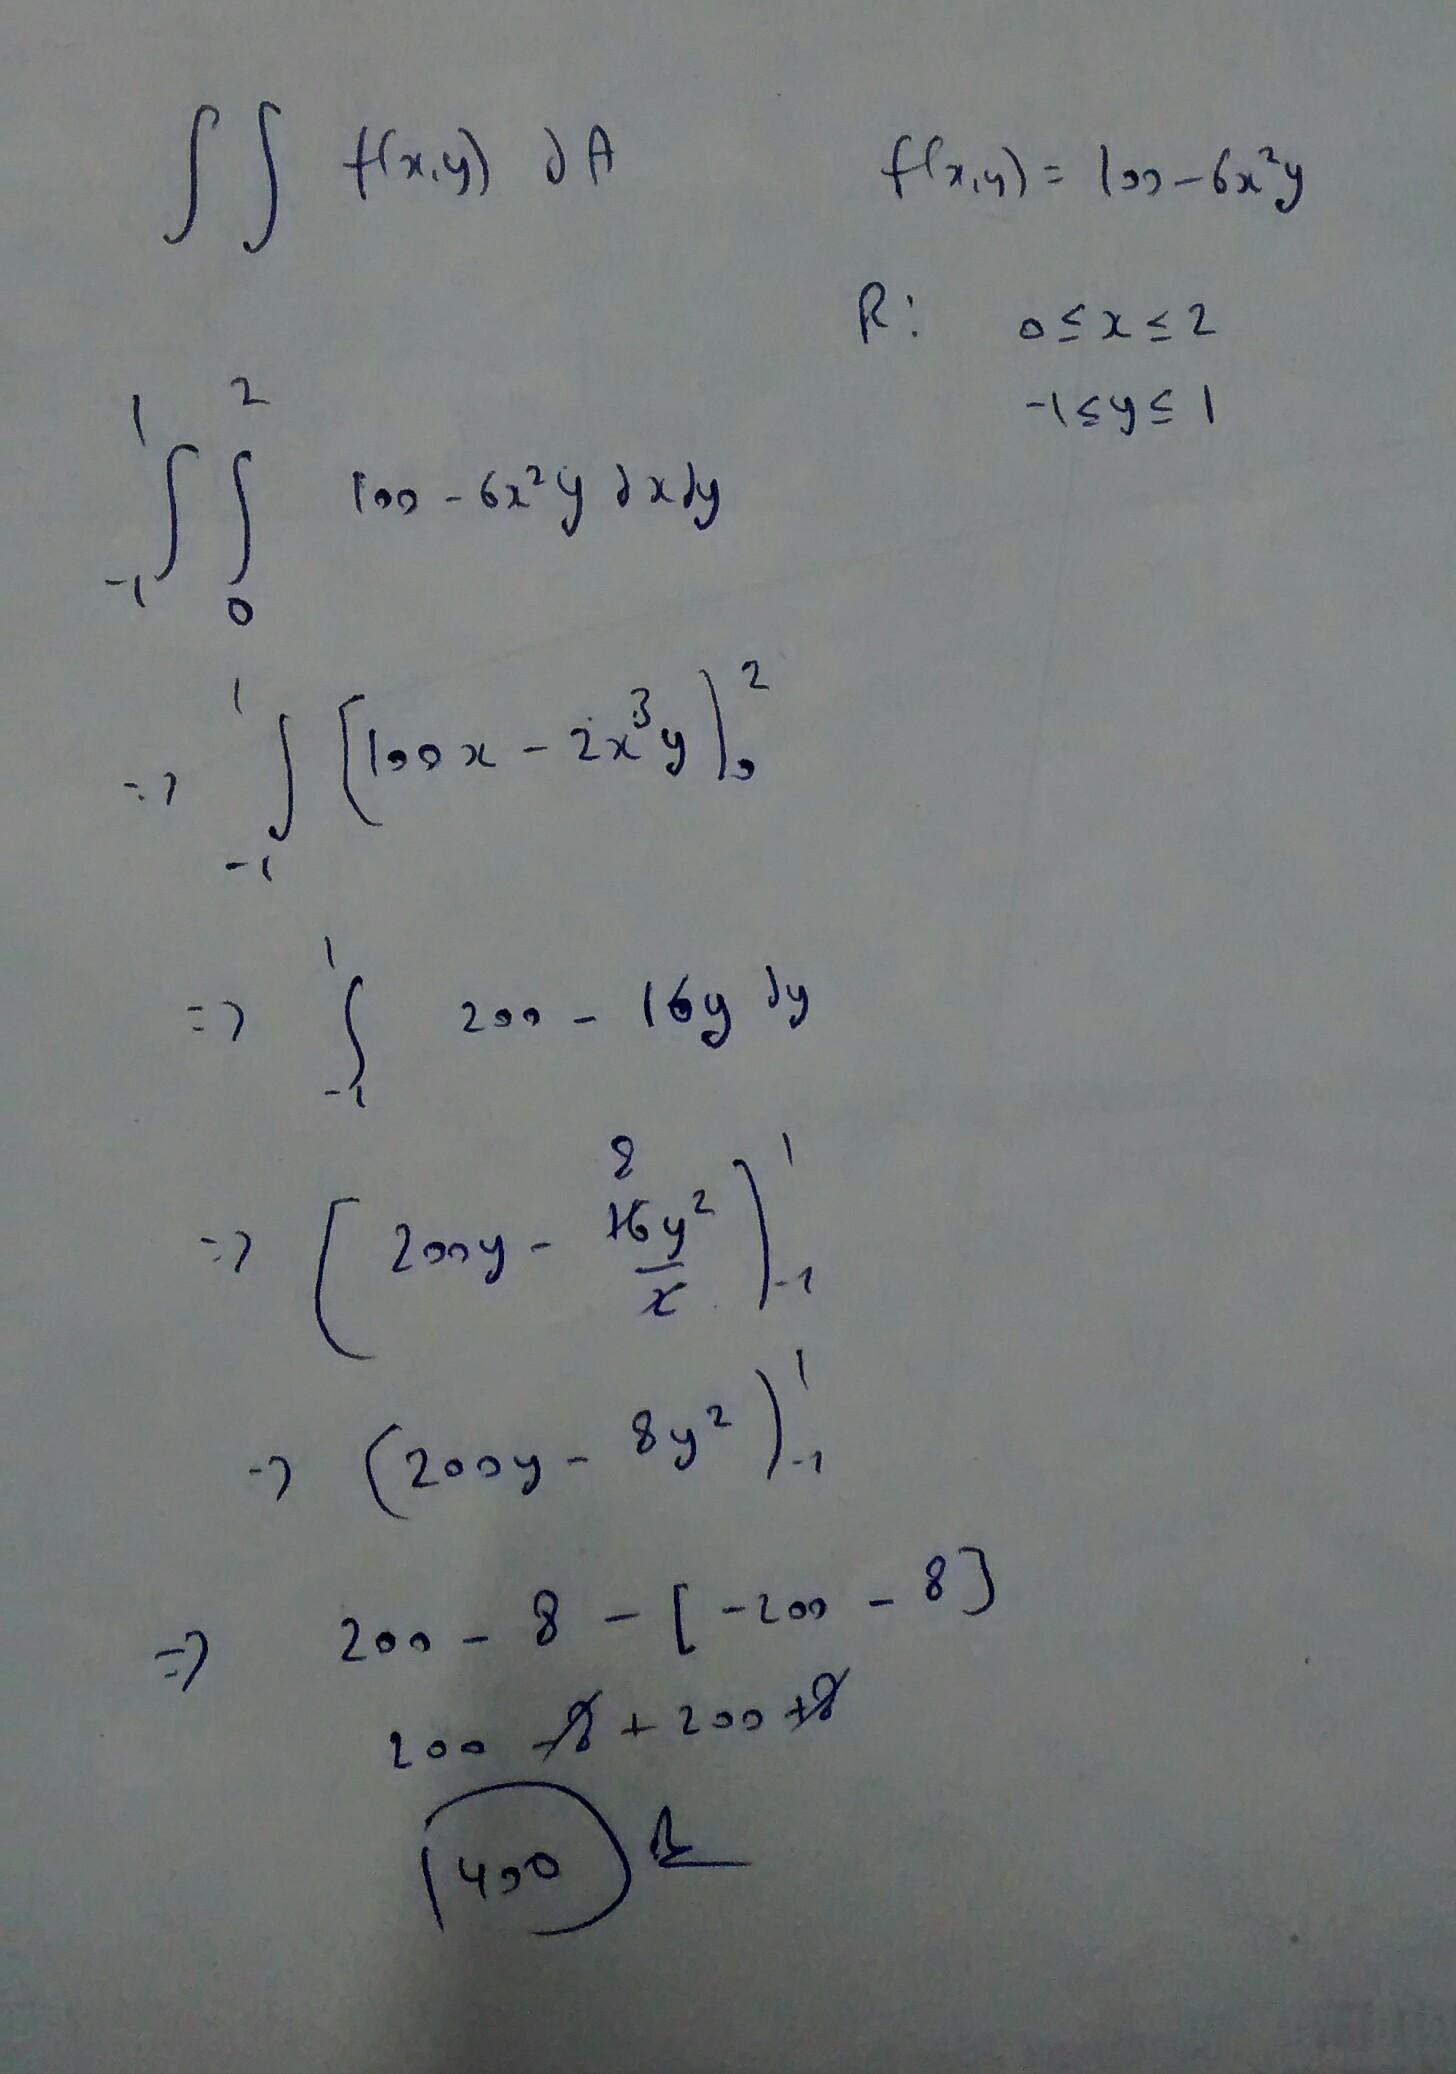 ∫∫ f(x,y) dA f(x,y) = 100 - 6x²y
R: 0 ≤ x ≤ 2
-1 ≤ y ≤ 1
∫₋₁¹ ∫₀² 100 - 6x²y dxdy
=> ∫₋₁¹ [100x - 2x³y]₀²
=> ∫₋₁¹ 200 - 16y dy
=> [200y - 16y²/2]₋₁¹ 8
=> (200y - 8y²)₋₁¹
=> 200 - 8 - [-200 - 8]
200 - 8 + 200 + 8
400